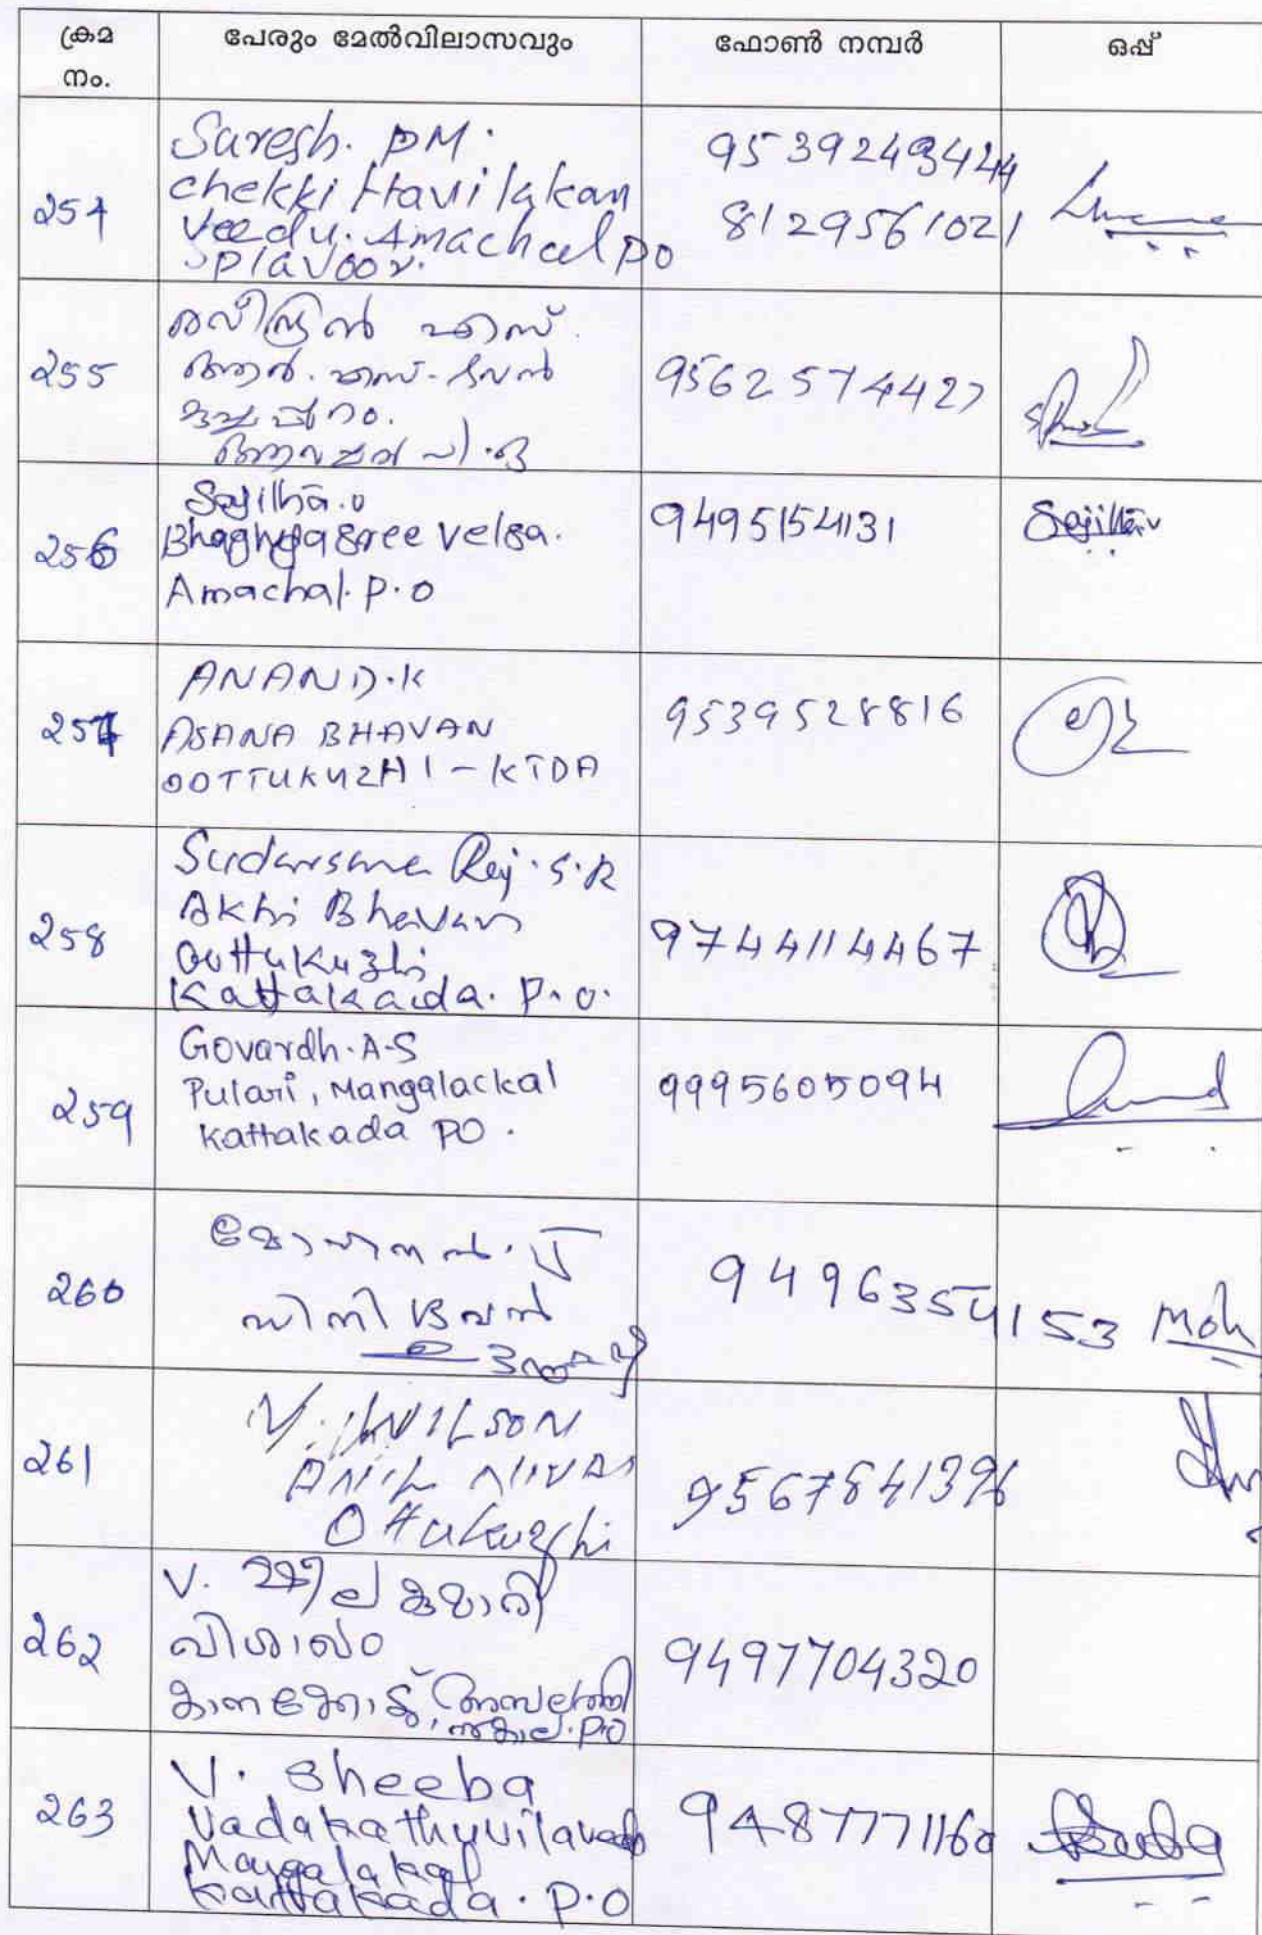 ക്രമ
നം.
പേരും മേൽവിലാസവും
ഫോൺ നമ്പർ
ഒപ്പ്
254
Suresh. PM.
chekkittavilakam
veedu. Amachal PO
Plavoor.
9539243424
8129561021
255
രവീന്ദ്രൻ എസ്.
ആർ. എസ്. ഭവൻ
പി.ഒ
9562574427
256
Sajitha.v
Bhaghyasree Velga.
Amachal. P.O
9495154131
257
ANAND.K
ASANA BHAVAN
OOTTUKUZHI - KTDA
9539528816
258
Sudarsana Raj. S.R
Akhi Bhavan
Oottukuzhi
Kattakada. P.O.
9744114467
259
Govardh. A-S
Pulari, Mangalackal
Kattakada PO.
9995605094
260
മോഹനൻ. V
സിനി ഭവൻ
9496354153
Moh
261
V. WILSON
ANIL NIVAS
Ottukuzhi
9567841396
262
V. ഷീലകുമാരി
വിശാഖം
കാനക്കോട്, അമ്പലത്തിൻകാല. P.O
9497704320
263
V. Sheeba
Vadakathuvilaveedu
Mangalakal
Kattakada. P.O
9487771160